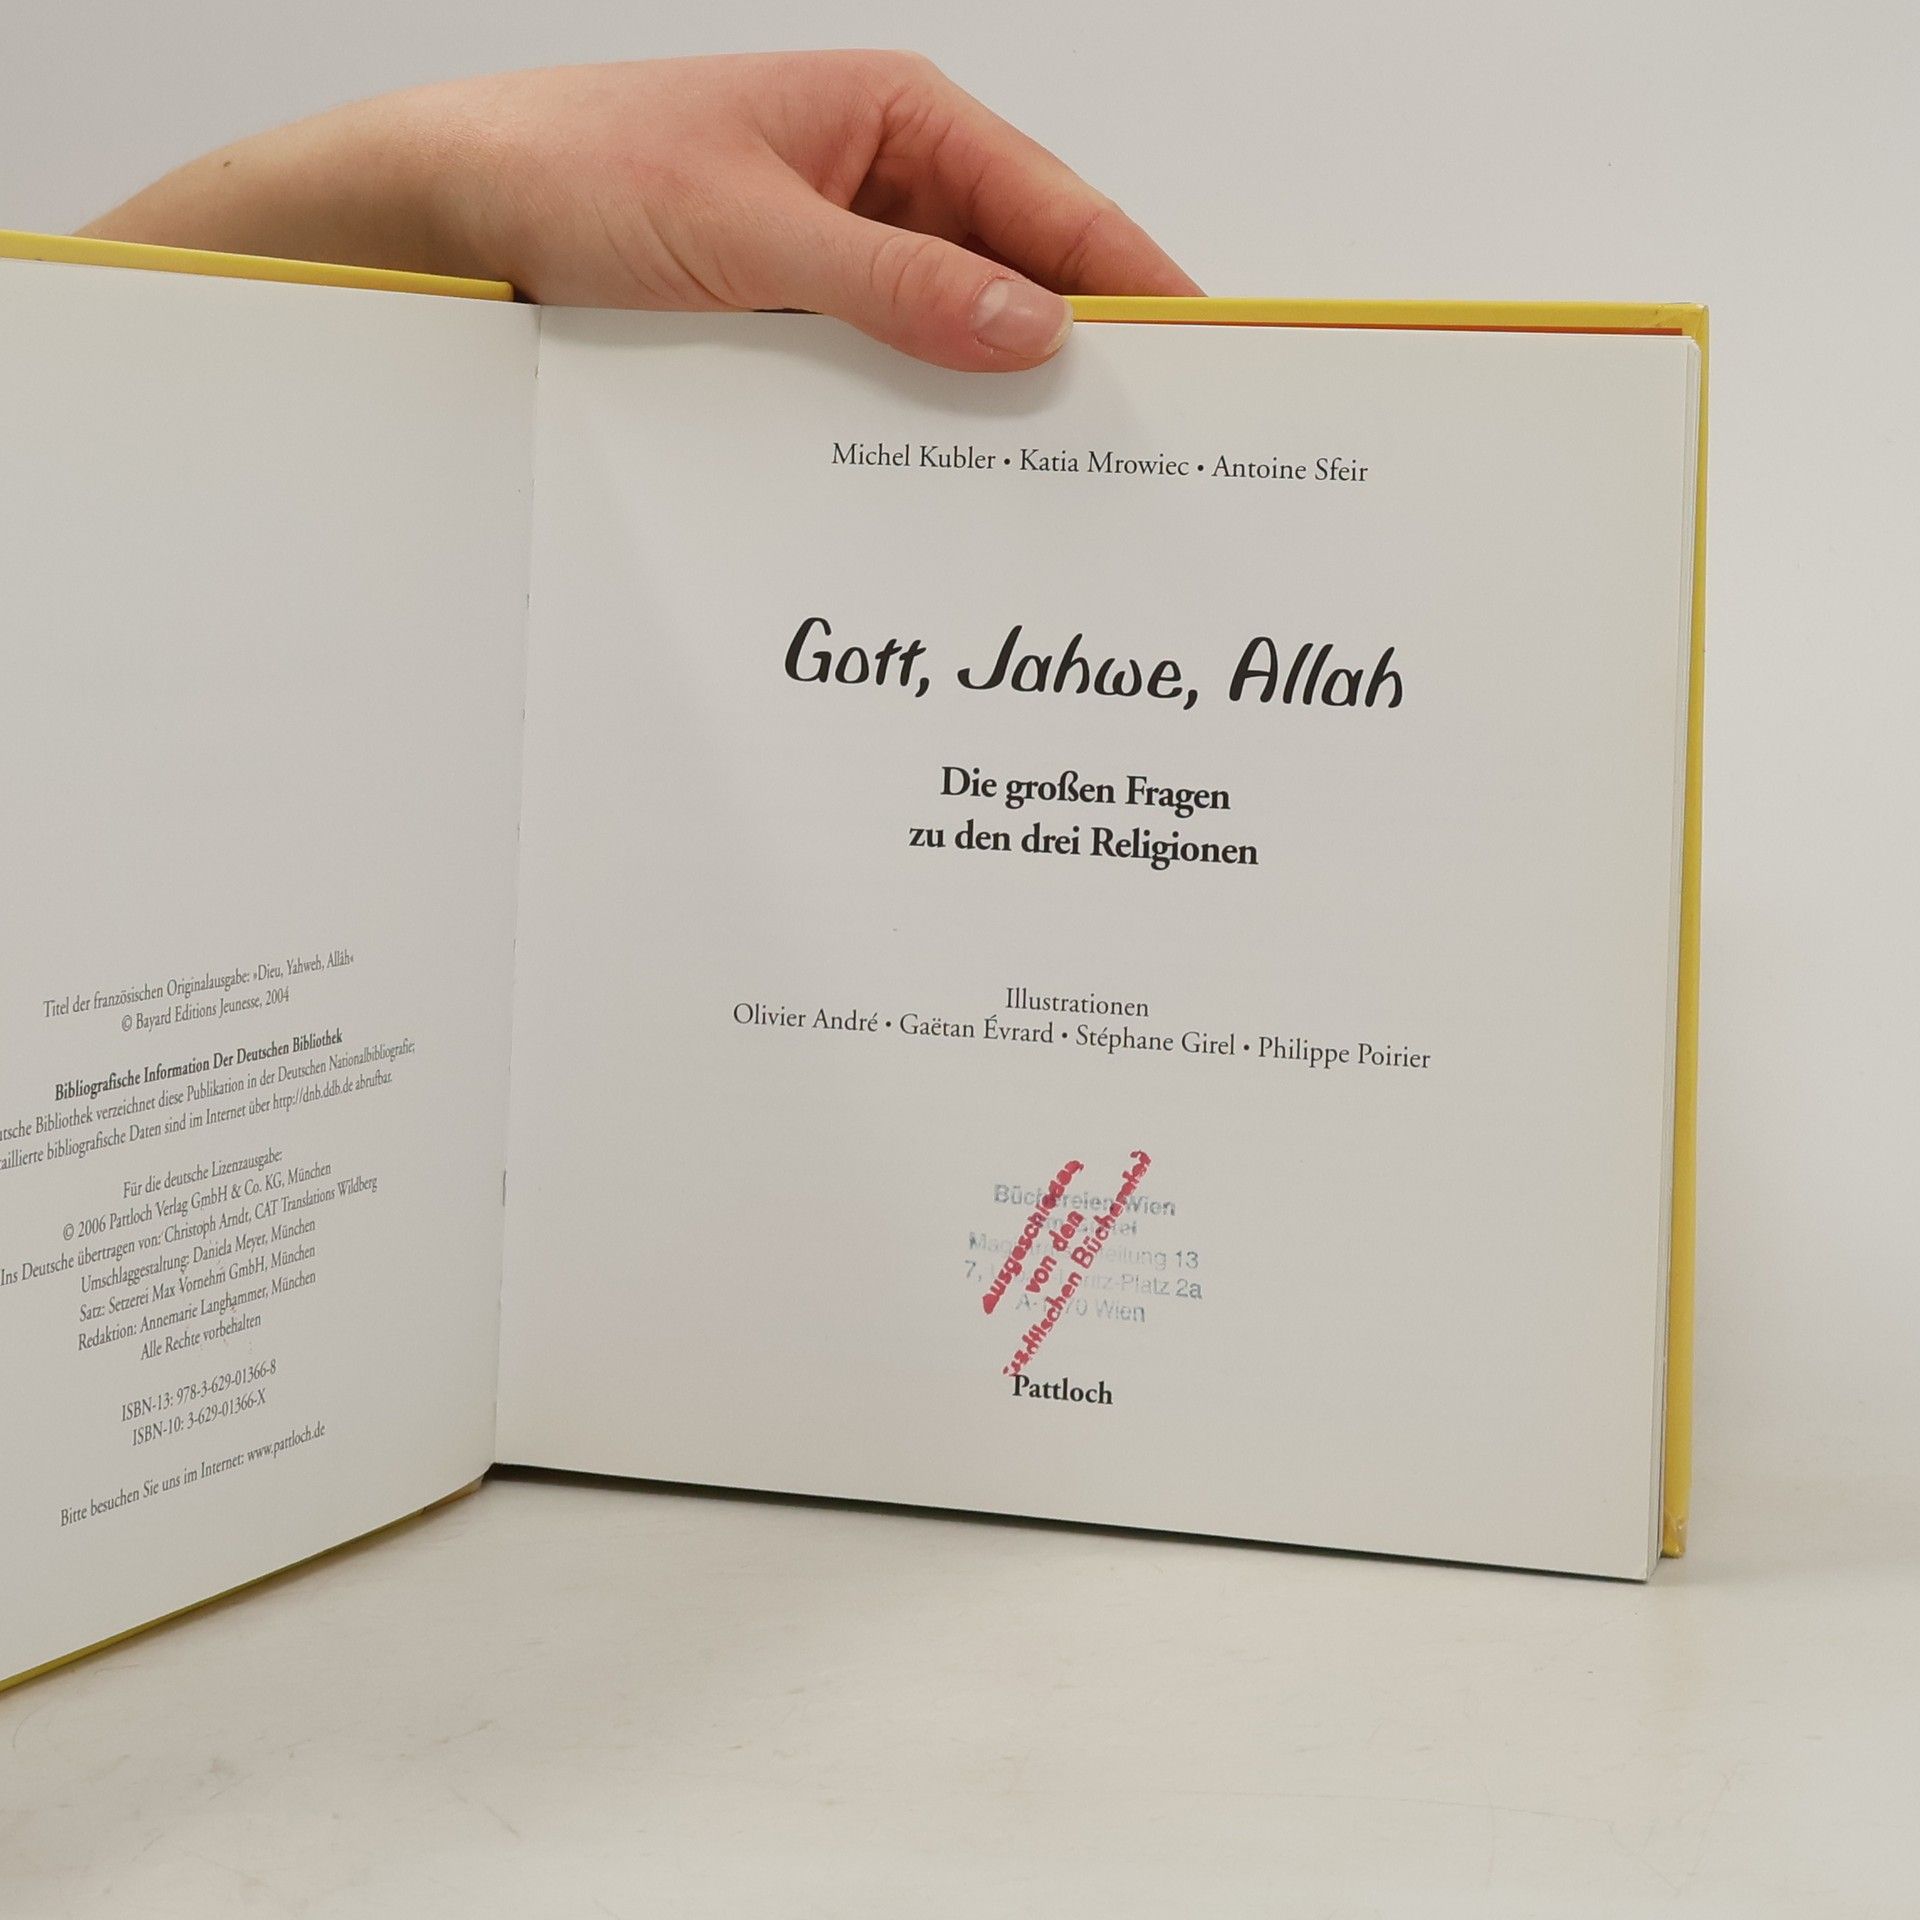 Titel der französischen Originalausgabe: »Dieu, Yahweh, Allâh«
© Bayard Editions Jeunesse, 2004
Bibliografische Information Der Deutschen Bibliothek
Bibliothek verzeichnet diese Publikation in der Deutschen Nationalbibliografie;
bibliografische Daten sind im Internet über http://dnb.ddb.de abrufbar.
Für die deutsche Lizenzausgabe:
© 2006 Pattloch Verlag GmbH & Co. KG, München
Ins Deutsche übertragen von: Christoph Arndt, CAT Translations Wildberg
Umschlaggestaltung: Daniela Meyer, München
Satz: Setzerei Max Vornehm GmbH, München
Redaktion: Annemarie Langhammer, München
Alle Rechte vorbehalten
ISBN-13: 978-3-629-01366-8
ISBN-10: 3-629-01366-X
Bitte besuchen Sie uns im Internet: www.pattloch.de
Michel Kubler • Katia Mrowiec • Antoine Sfeir
Gott, Jahwe, Allah
Die großen Fragen
zu den drei Religionen
Illustrationen
Olivier André • Gaëtan Évrard • Stéphane Girel • Philippe Poirier
Büchereien Wien
13
7, Platz 2a
Wien
ausgeschieden
von den
städtischen Büchereien
Pattloch